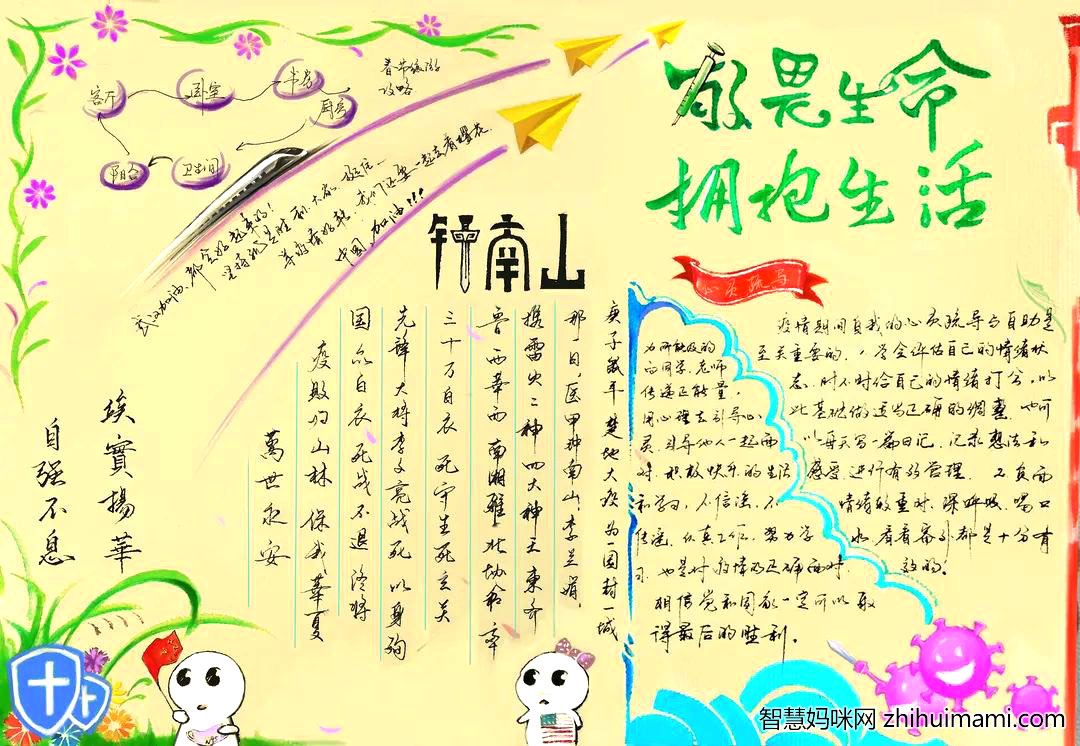 敬畏生命
拥抱生活
客厅
卧室
书房
厨房
卫生间
阳台
春节旅游
攻略
武汉加油,都会好起来的!
坚持就是胜利,大家
等疫情好转,我们还要一起去看樱花.
中国加油!!!
钟南山
庚子鼠年 楚地大疫 为一国封一城
那一日,医甲钟南山,李兰娟,
携雷火二神 四大神王 东齐
鲁 西华西 南湘雅 北协和 率
三十万白衣 死守生死玄关
先锋大将李文亮战死 以身殉
国 众白衣死战不退 终将
疫败归山林 保我華夏
萬世永安
埃實揚華
自强不息
心灵疏导
疫情期间自我的心灵疏导与自助是
至关重要的,学会评估自己的情绪状
态,时不时给自己的情绪打分,以
此基础做适当正确的调整,也可
以每天写一篇日记,记录想法和
感受,进行有效管理,又负面
情绪较重时,深呼吸,喝口
水,看看窗外都是十分有
效的!
为所触及的
同学,老师
传递正能量,
用心理去引导心
灵,引导他人一起面
对,积极快乐的生活
和学习,不信谣,不
传谣,认真工作,努力学
习,也是对疫情的正确面对.
相信党和国家一定可以取
得最后的胜利.
智慧妈咪网 zhihuimami.com